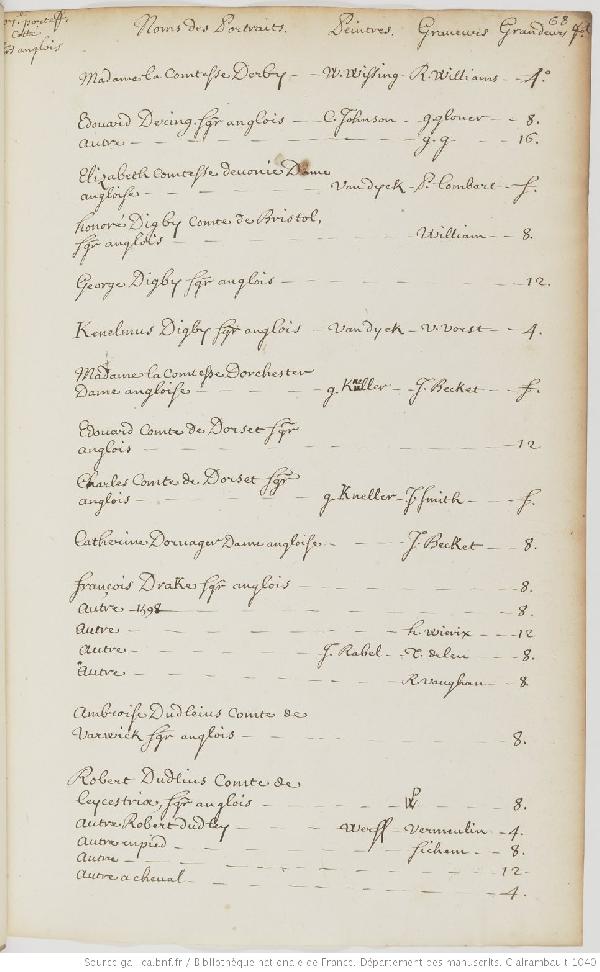 68
Noms des Portraits. Peintres. Graveurs Grandeurs
anglois
Madame la Comtesse Derby - W. Wissing - R. Williams - 4.°
Edouard Dering sgr anglois - C. Johnson - g. glover - 8.
Autre - g. g. - 16.
Elizabeth Comtesse devonie Dame
angloise - Vandyck - P. Lombart - f.
honoré Digby Comte de Bristol,
sgr anglois - William - 8.
George Digby sgr anglois - 12.
Kenelmus Digby sgr anglois - Vandyck - V. Vorst - 4.
Madame la Comtesse Dorchester
Dame angloise - g. Kneller - J. Becket - f.
Edouard Comte de Dorset sgr
anglois - 12
Charles Comte de Dorset sgr
anglois - g. Kneller - J. Smith - f.
Catherine Dornager Dame angloise - J. Becket - 8.
françois Drake sgr anglois - 8.
Autre - 1598 - 8.
Autre - h. wierix - 12
Autre - J. Rabel - T. deleu - 8.
Autre - R. Vaughan - 8
Ambroise Dudleius Comte de
Varwick sgr anglois - 8.
Robert Dudlius Comte de
Leycestrix, sgr anglois - 8.
Autre Robert dudley - Werff - Vermeulin - 4.
Autre en pied - sichem - 8.
Autre - 12
Autre a cheval - 4.
Source gallica.bnf.fr / Bibliothèque nationale de France. Département des manuscrits. Clairambault 1040